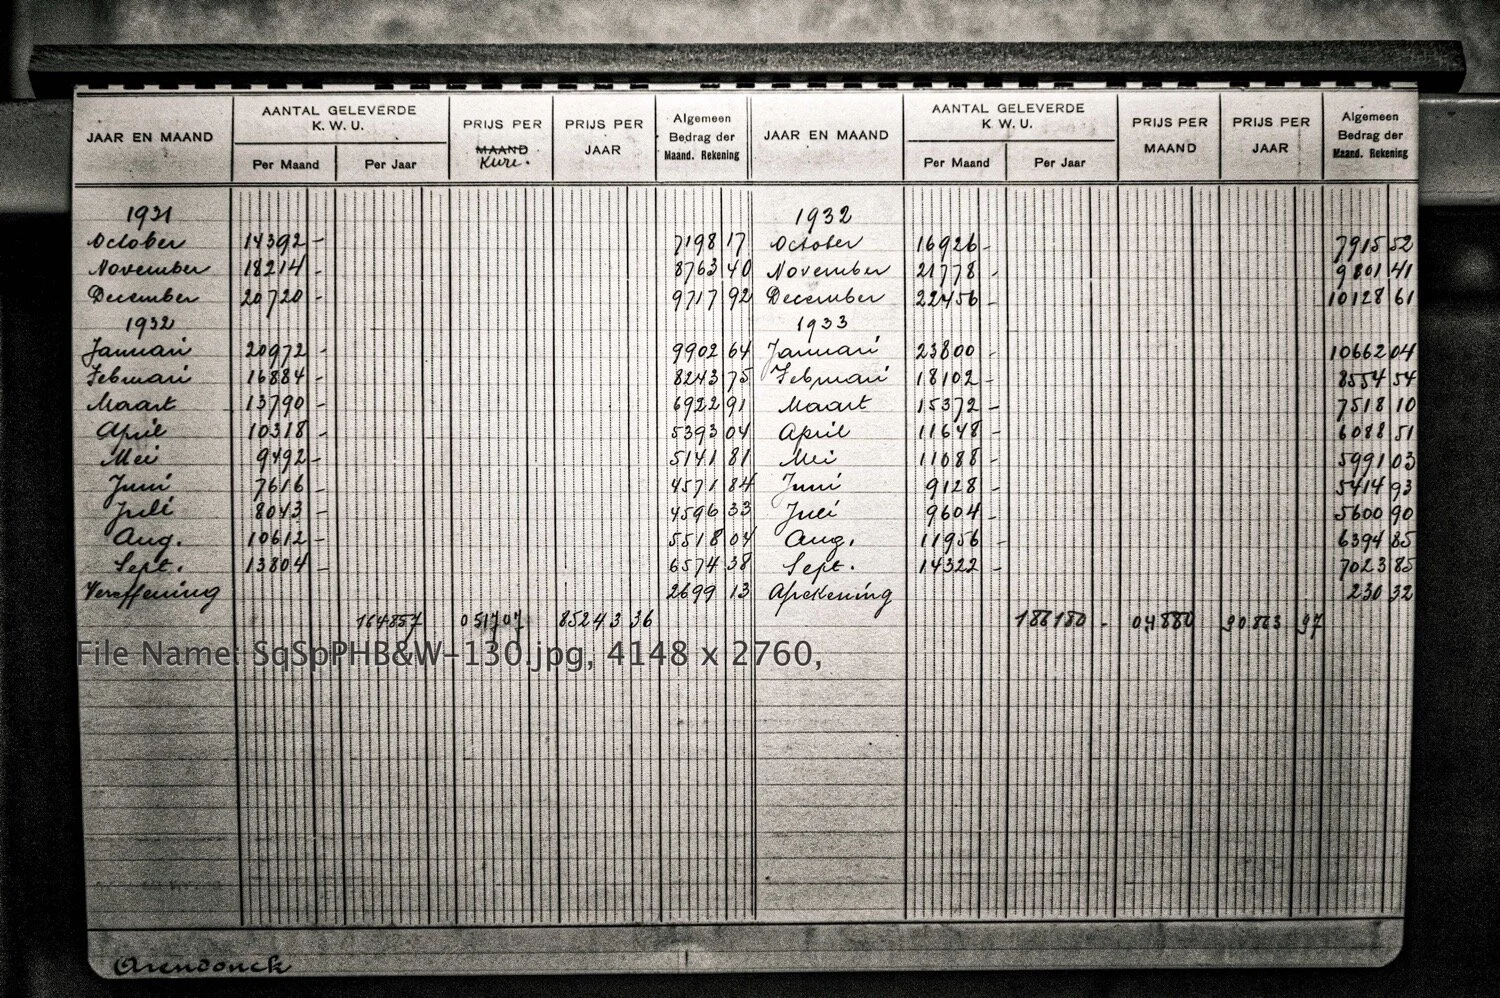 JAAR EN MAAND AANTAL GELEVERDE K. W. U. Per Maand Per Jaar PRIJS PER MAAND Kwu. PRIJS PER JAAR Algemeen Bedrag der Maand. Rekening
1931
October 14392 - 7198 17
November 18214 - 8763 40
December 20720 - 9717 92
1932
Januari 20972 - 9902 64
Februari 16884 - 8243 75
Maart 13790 - 6922 91
April 10318 - 5393 04
Mei 9492 - 5141 81
Juni 7616 - 4571 84
Juli 8043 - 4596 33
Aug. 10612 - 5518 04
Sept. 13804 - 6574 38
Vereffening 2699 13
164857 051707 85243 36
JAAR EN MAAND AANTAL GELEVERDE K. W. U. Per Maand Per Jaar PRIJS PER MAAND PRIJS PER JAAR Algemeen Bedrag der Maand. Rekening
1932
October 16926 - 7915 52
November 21778 - 9801 41
December 22456 - 10128 61
1933
Januari 23800 - 10662 04
Februari 18102 - 8554 54
Maart 15372 - 7518 10
April 11648 - 6088 51
Mei 11088 - 5991 03
Juni 9128 - 5414 93
Juli 9604 - 5600 90
Aug. 11956 - 6394 85
Sept. 14322 - 7023 85
Afrekening 230 32
186180 - 04880 90863 97
File Name: SqSpPHB&W-130.jpg, 4148 x 2760,
Arendonck